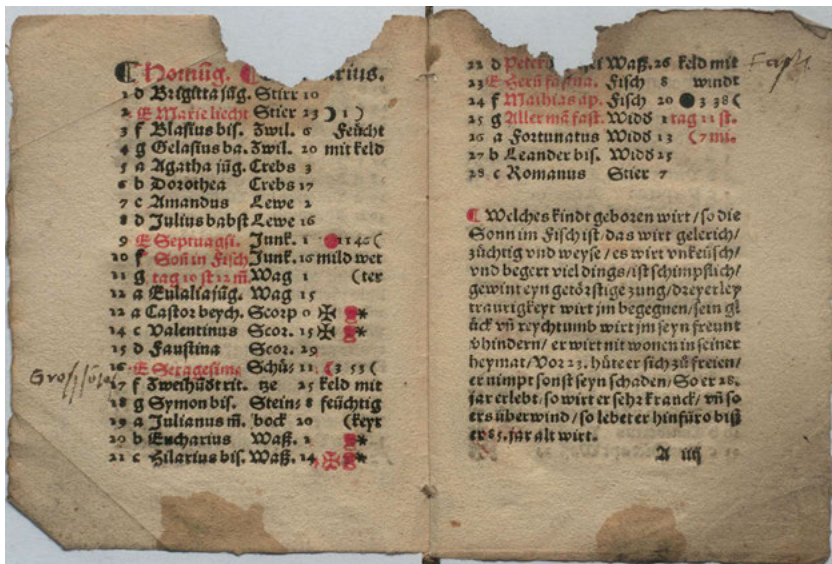 Hornūg. rius.
1 d Brigitta jūg. Stirr 10
2 E Marie liecht Stier 23 ☽ 1 )
3 f Blasius bis. Zwil. 6 Feücht
4 g Gelasius ba. Zwil. 20 mit keld
5 a Agatha jūg. Crebs 3
6 b Dorothea Crebs 17
7 c Amandus Lewe 2
8 d Julius babst Lewe 16
9 E Septuagsi. Junk. 1
10 f Soñ in Fisch Junk. 16 mild wet
11 g tag 10 st 12 m̄. Wag 1 (ter
12 a Eulalia jūg. Wag 15
12 a Castor beych. Scorp 0 ✠ *
14 c Valentinus Scor. 15 ✠ *
15 d Faustina Scor. 29
16 E Sexagesime Schüs 11 ☾ 3 55 (
17 f Zweihūdt rit. tze 25 keld mit
18 g Symon bis. Stein⸗ 8 feüchtig
19 a Julianus m̄. bock 20 (keyt
20 b Eucharius Waß. 2 *
21 c Hilarius bis. Waß. 14 ✠ *
22 d Peter Waß. 26 keld mit
23 E Herñ fasina. Fisch 8 windt
24 f Mathias ap. Fisch 20 ● 3 38 (
25 g Aller mā fast. Widd 1 tag 11 st.
26 a Fortunatus Widd 13 (7 mi.
27 b Leander bis. Widd 25
28 c Romanus Stier 7
Welches kindt geboren wirt / so die
Sonn im Fisch ist / das wirt gelerich /
züchtig vnd weyse / es wirt vnkeüsch /
vnd begert viel dings / ist schimpflich /
gewint eyn getörstige zung / dreyerley
traurigkeyt wirt jm begegnen / sein gl
ück vñ reychtumb wirt jm seyn freunt
vhindern / er wirt nit wonen in seiner
heymat / Vor 23. hüte er sich zů freien /
er nimpt sonst seyn schaden / So er 28.
jar erlebt / so wirt er sehr kranck / vñ so
ers überwind / so lebet er hinfüro biß
er 85. jar alt wirt.
A iiij